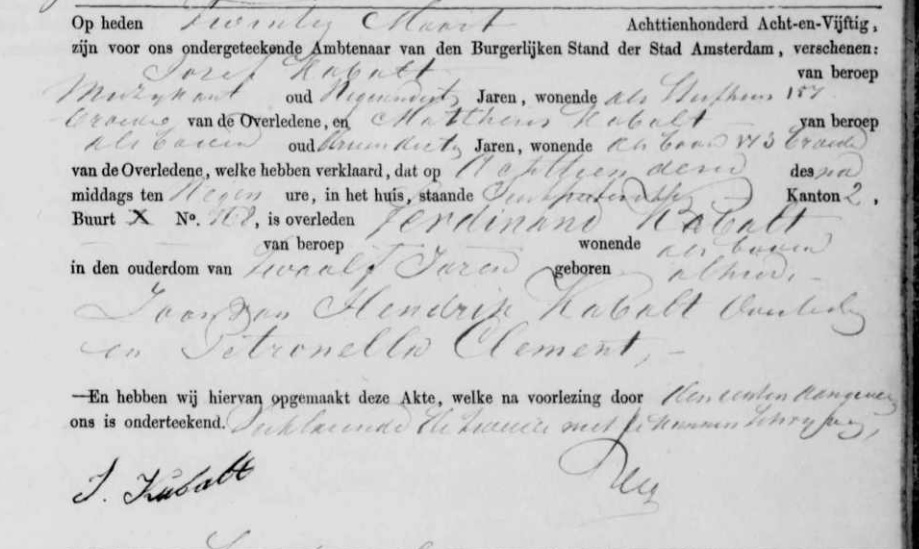 Op heden Twintig Maart Achttienhonderd Acht-en-Vijftig,
zijn voor ons ondergeteekende Ambtenaar van den Burgerlijken Stand der Stad Amsterdam, verschenen:
Josef Kabalt van beroep
Muzykant oud Negenendertig Jaren, wonende als 157
broeder van de Overledene, en Mattheus Kabalt van beroep
als boven oud Jaren, wonende als boven 173 broeder
van de Overledene, welke hebben verklaard, dat op Achttien dezer des na
middags ten Negen ure, in het huis, staande Kanton 2,
Buurt X No. 368, is overleden Ferdinand Kabalt
van beroep wonende als boven
in den ouderdom van Twaalf Jaren geboren alhier,
Zoon van Hendrik Kabalt Overleden
en Petronella Clement,
En hebben wij hiervan opgemaakt deze Akte, welke na voorlezing door den eersten Aangever
ons is onderteekend. Verklarende de tweede niet te kunnen schryven,
J. Kabalt